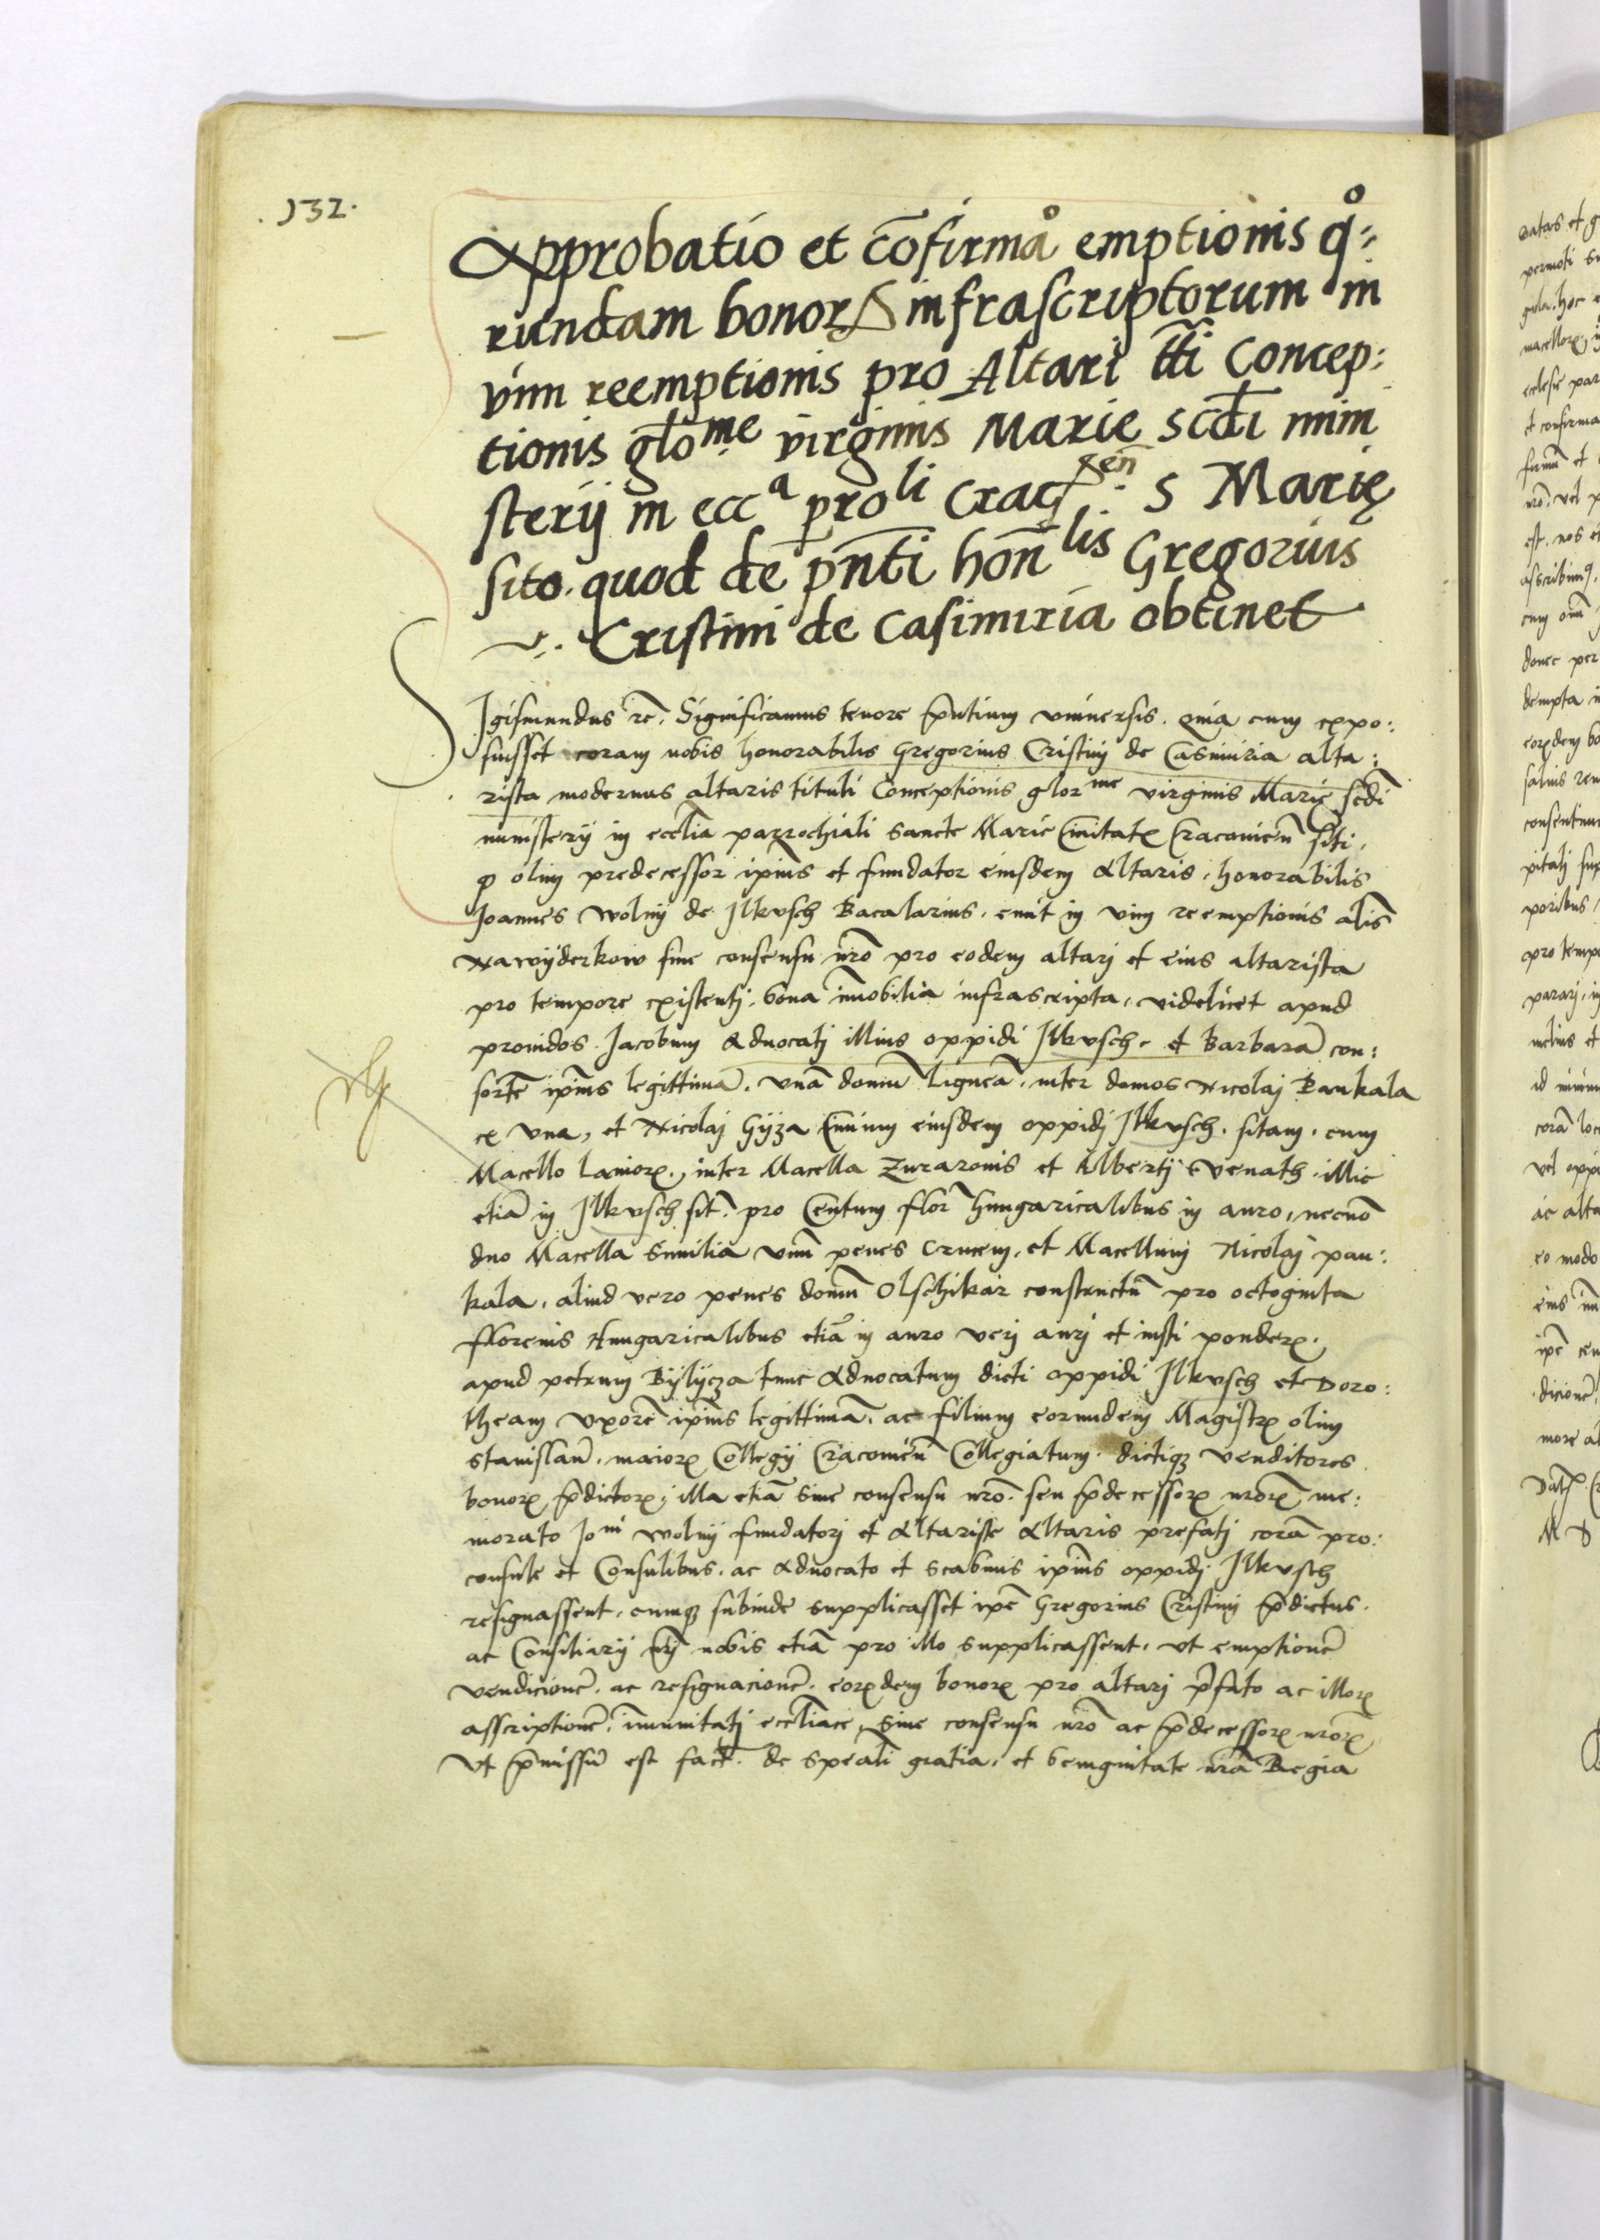 . 132 .
Approbatio et cõfirmaº emptionis qº:
rundam bonorꝝ infrascriptorum in
vim reemptionis pro Altari tt̃i Concep:
tionis gloᵐᵉ virginis Marie scd̃i mini
sterij in eccᵃ ꝑroˡⁱ Crac S Marię
sito. quod de pñti hoñˡⁱˢ Gregorius
Cristini de Casimiria obtinet
Sigismundus rc̃. Significamus tenore p̃ntium vniuersis. Quia cum expo:
suisset coram nobis honorabilis Gregorius Cristinj de Casimiria alta:
rista modernus altaris tituli Conceptionis glorᵐᵉ virginis Marie scd̃i
ministerij in eccl̃ia parrochiali Sancte Marie Ciuitatꝭ Cracouieñ siti,
ꝙ olim predecessor ip̃ius et fundator eiusdem Altaris, honorabilis
Joannes Wolnij de Ilkusch Bacalarius, emit in vim reemptionis al̃s
Nawyderkow sine consensu nr̃o pro eodem altari et eius altarista
pro tempore existentj, bona im̃obilia infrascripta, videlicet apud
prouidos Jacobum Aduocatj illius oppidi Ilkusch, et Barbarã con:
sortẽ ip̃ius legittimã, vnã domũ ligneã, inter domos Nicolaj Baukala
ex vna, et Nicolaj Gyza Ciuium eiusdem oppidj Ilkusch, sitam, cum
Macello Laniorꝝ, inter Macella Zuraronis et Albertj Evenath, illic
etiã in Ilkusch sit̃. pro Centum flor̃ hungaricalibus in auro, necnõ
duo Macella Similia vnũ penes Crucem, et Macellum Nicolaj pau:
kala, aliud vero penes domũ Olschikar constructũ pro octoginta
fflorenis Hungaricalibus etiã in auro verj aurj et iusti ponderꝭ,
apud petrum Bylycza tunc Aduocatum dicti oppidi Ilkusch et Doro:
theam vxorẽ ip̃ius legittimã, ac filium eorundem Magistrꝝ olim
Stanislaũ, maiorꝭ Collegij Cracouieñ Collegiatum. dictiqꝫ venditores
bonorꝝ p̃dictorꝝ, illa etiã sine consensu nr̃o. seu p̃decessorꝝ nr̃orꝝ me:
morato Joⁿⁱ Wolnij fundatorj et Altariste Altaris prefatj corã pro:
consule et Consulibus, ac Aduocato et Scabinis ip̃ius oppidj Ilkusch
resignassent, cumqꝫ subinde supplicasset ip̃e Gregorius Cristinj p̃dictus.
ac Consiliarij nr̃j nobis etiã pro illo supplicassent, vt emptionẽ
vendicionẽ, ac resignacionẽ, eorꝝdem bonorꝝ pro altarj p̃fato ac illorꝝ
asscriptionẽ, im̃unitatj eccl̃iace, Sine consensu nr̃o ac p̃decessorꝝ nr̃orꝝ
Vt p̃missũ est fact̃. de Speali gratia, et benignitate nr̃a Regia